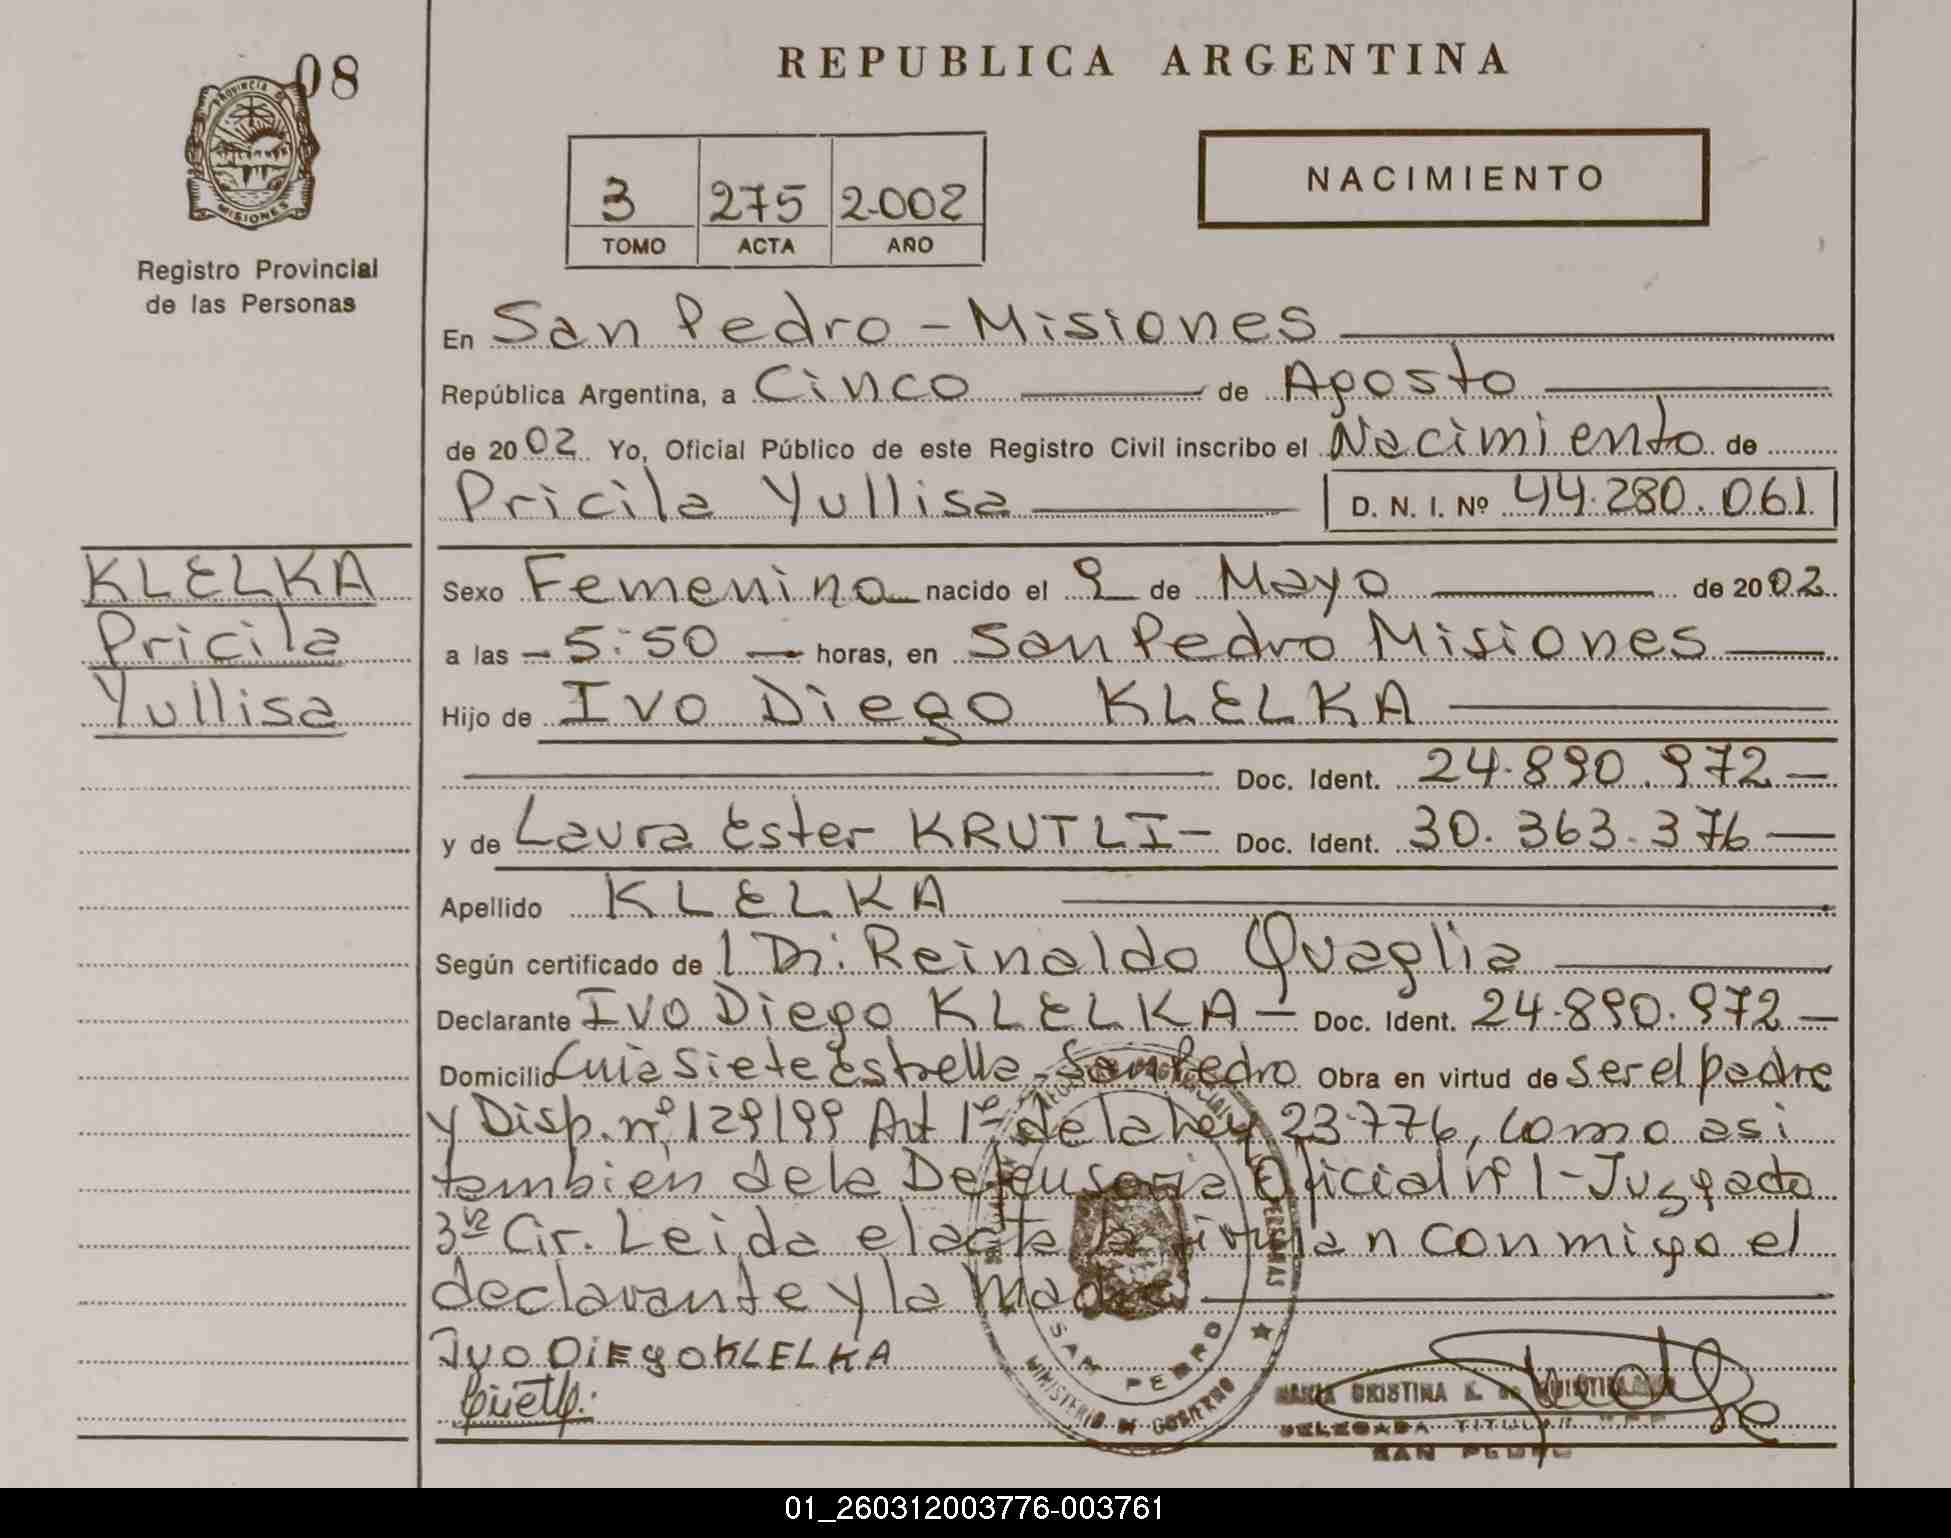 08
PROVINCIA DE
MISIONES
Registro Provincial
de las Personas
REPUBLICA ARGENTINA
3 275 2.002
TOMO ACTA AÑO
NACIMIENTO
En San Pedro - Misiones
República Argentina, a Cinco de Agosto
de 2002 Yo, Oficial Público de este Registro Civil inscribo el Nacimiento de
Pricila Yullisa D. N. I. Nº 44.280.061
KLELKA
Pricila
Yullisa
Sexo Femenino nacido el 9 de Mayo de 2002
a las - 5:50 - horas, en San Pedro Misiones
Hijo de Ivo Diego KLELKA
Doc. Ident. 24.890.972 -
y de Laura Ester KRUTLI - Doc. Ident. 30.363.376
Apellido KLELKA
Según certificado de 1 Dr: Reinaldo Quaglia
Declarante IVO Diego KLELKA - Doc. Ident. 24.890.972 -
Domicilio Cuia Siete Estrella - San Pedro Obra en virtud de ser el padre
y Disp. nº 129/99 Art 1º de la Ley 23.776, como asi
tambien de la Defensoria Oficial nº 1 - Juzgado
3ra Cir. Leida el acta la firman conmigo el
declarante y la Madre
Ivo DiEgo KLELKA
SAN PEDRO
MINISTERIO DE GOBIERNO
MARIA CRISTINA K. de
DELEGADA TITULAR
SAN PEDRO
01_260312003776-003761